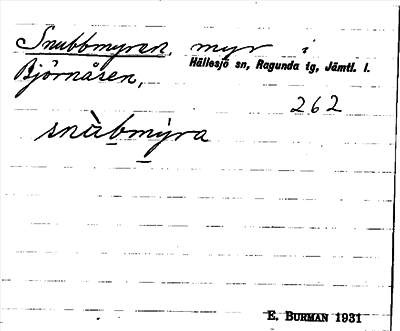 Snubbmyran, myr i
Hällesjö sn, Ragunda tg, Jämtl. l.
Björnåsen,
262
snùbmýra
E. BURMAN 1931